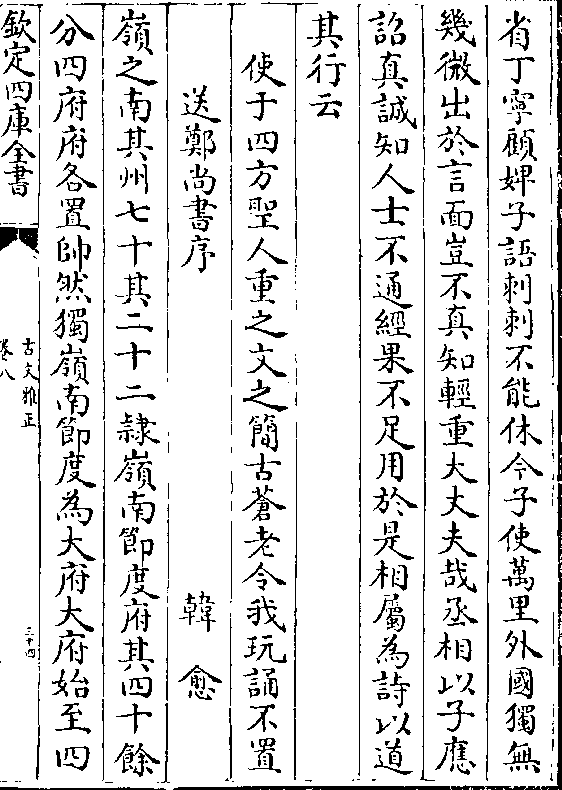 省丁寧顧婢子語刺刺不能休今子使萬里外國獨無
幾微出於言面豈不真知輕重大丈夫哉丞相以子應
詔真誠知人士不通經果不足用於是相屬為詩以道
其行云
使于四方聖人重之文之簡古蒼老令我玩誦不置
送鄭尚書序 韓愈
嶺之南其州七十其二十二隷嶺南節度府其四十餘
分四府府各置帥然獨嶺南節度為大府大府始至四
欽定四庫全書
古文雅正
卷八
三十四